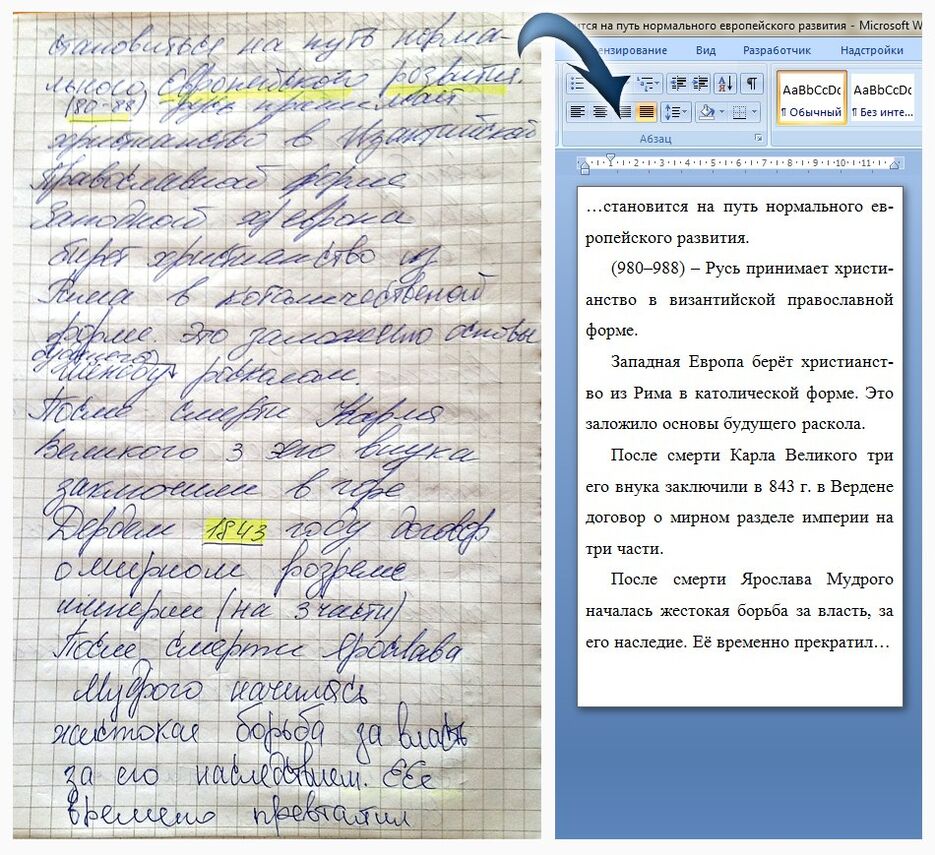 становиться на путь норма-
льного европейского розвития.
(80-88) Русь принимает
христианство в Византийской
Православной форме
Западной европа
берет христианство из
Рима в католичественой
форме. Это заложено основы
будущего раскалом.
После смерти Карла
Великого 3 его внука
заключили в горе
Вердем 1843 году договор
о мирном розделе
империи (на 3 части)
После смерти Ярослава
Мудрого началась
жестокая борьба за власть
за его наследствием. ЕЕе
времено
ится на путь нормального европейского развития - Microsoft W
ензирование Вид Разработчик Надстройки
AaBbCcDc AaBbCcDc
¶ Обычный ¶ Без инте...
Абзац
1 2 3 4 5 6 7 8 9 10 11
…становится на путь нормального ев-
ропейского развития.
(980–988) – Русь принимает христи-
анство в византийской православной
форме.
Западная Европа берёт христианст-
во из Рима в католической форме. Это
заложило основы будущего раскола.
После смерти Карла Великого три
его внука заключили в 843 г. в Вердене
договор о мирном разделе империи на
три части.
После смерти Ярослава Мудрого
началась жестокая борьба за власть, за
его наследие. Её временно прекратил…